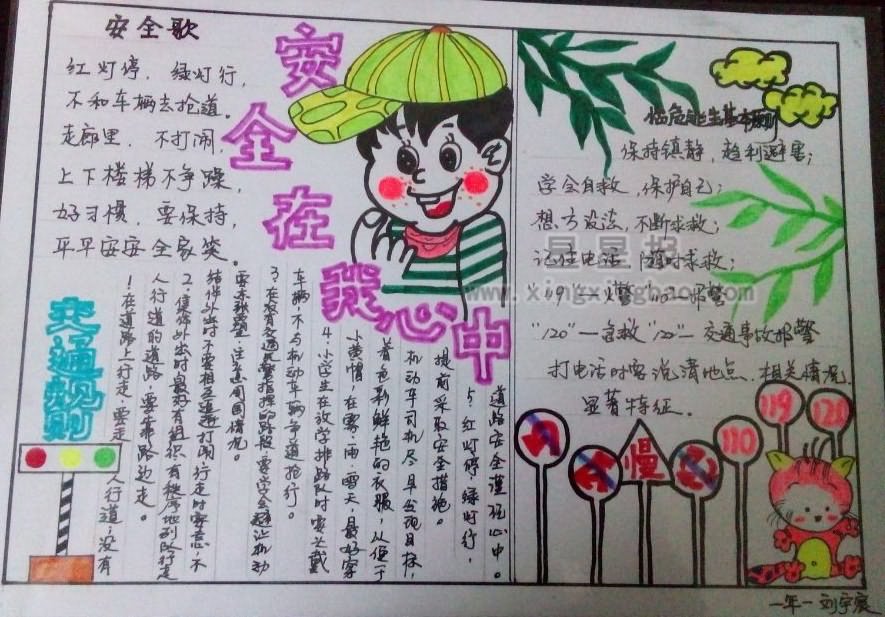 安全歌
红灯停，绿灯行，
不和车辆去抢道。
走廊里，不打闹，
上下楼梯不争躁，
好习惯，要保持，
平平安安全家笑。
安全在我心中
交通规则
1.在道路上行走，要走人行道，没有
人行道的道路，要靠路边走。
2.集体外出时，最好有组织有秩序地列队行走
结伴外出时不要相互追逐打闹，行走时要专心，不
要东张西望，注意周围情况。
3.在没有交通民警指挥的路段，要学会避让机动
车辆，不与机动车辆争道抢行。
4.小学生在放学排路队时要头戴
小黄帽，在雾、雨、雪天，最好穿
着色彩鲜艳的衣服，以便于
机动车司机尽早发现目标，
提前采取安全措施。
5.红灯停，绿灯行，
道路安全谨记心中。
临危能生基本规则
保持镇静，趋利避害；
学会自救，保护自己；
想方设法，不断求救；
记住电话 随时求救；
"119"—火警"110"—报警
"120"—急救"122"—交通事故报警
打电话时要说清地点、相关情况、
显著特征。
慢
110
119
120
星星报
www.xingxingbao.com
一年一 刘宇宸